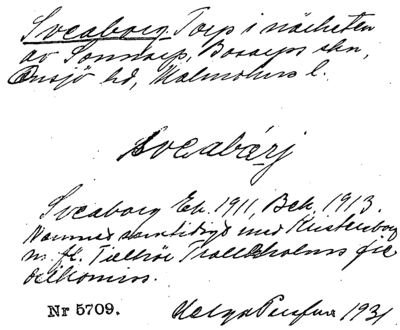 Sveaborg. Torp i närheten
av Sonnarp, Bosarps skn,
Onsjö hd, Malmöhus l.
sveabǽrj
Sveaborg Ek. 1911, Bek. 1913.
Namnet samtidigt med Kristinborg
m. fl. Tillhör Trolleholms fidei
Nr 5709. Helge 1931